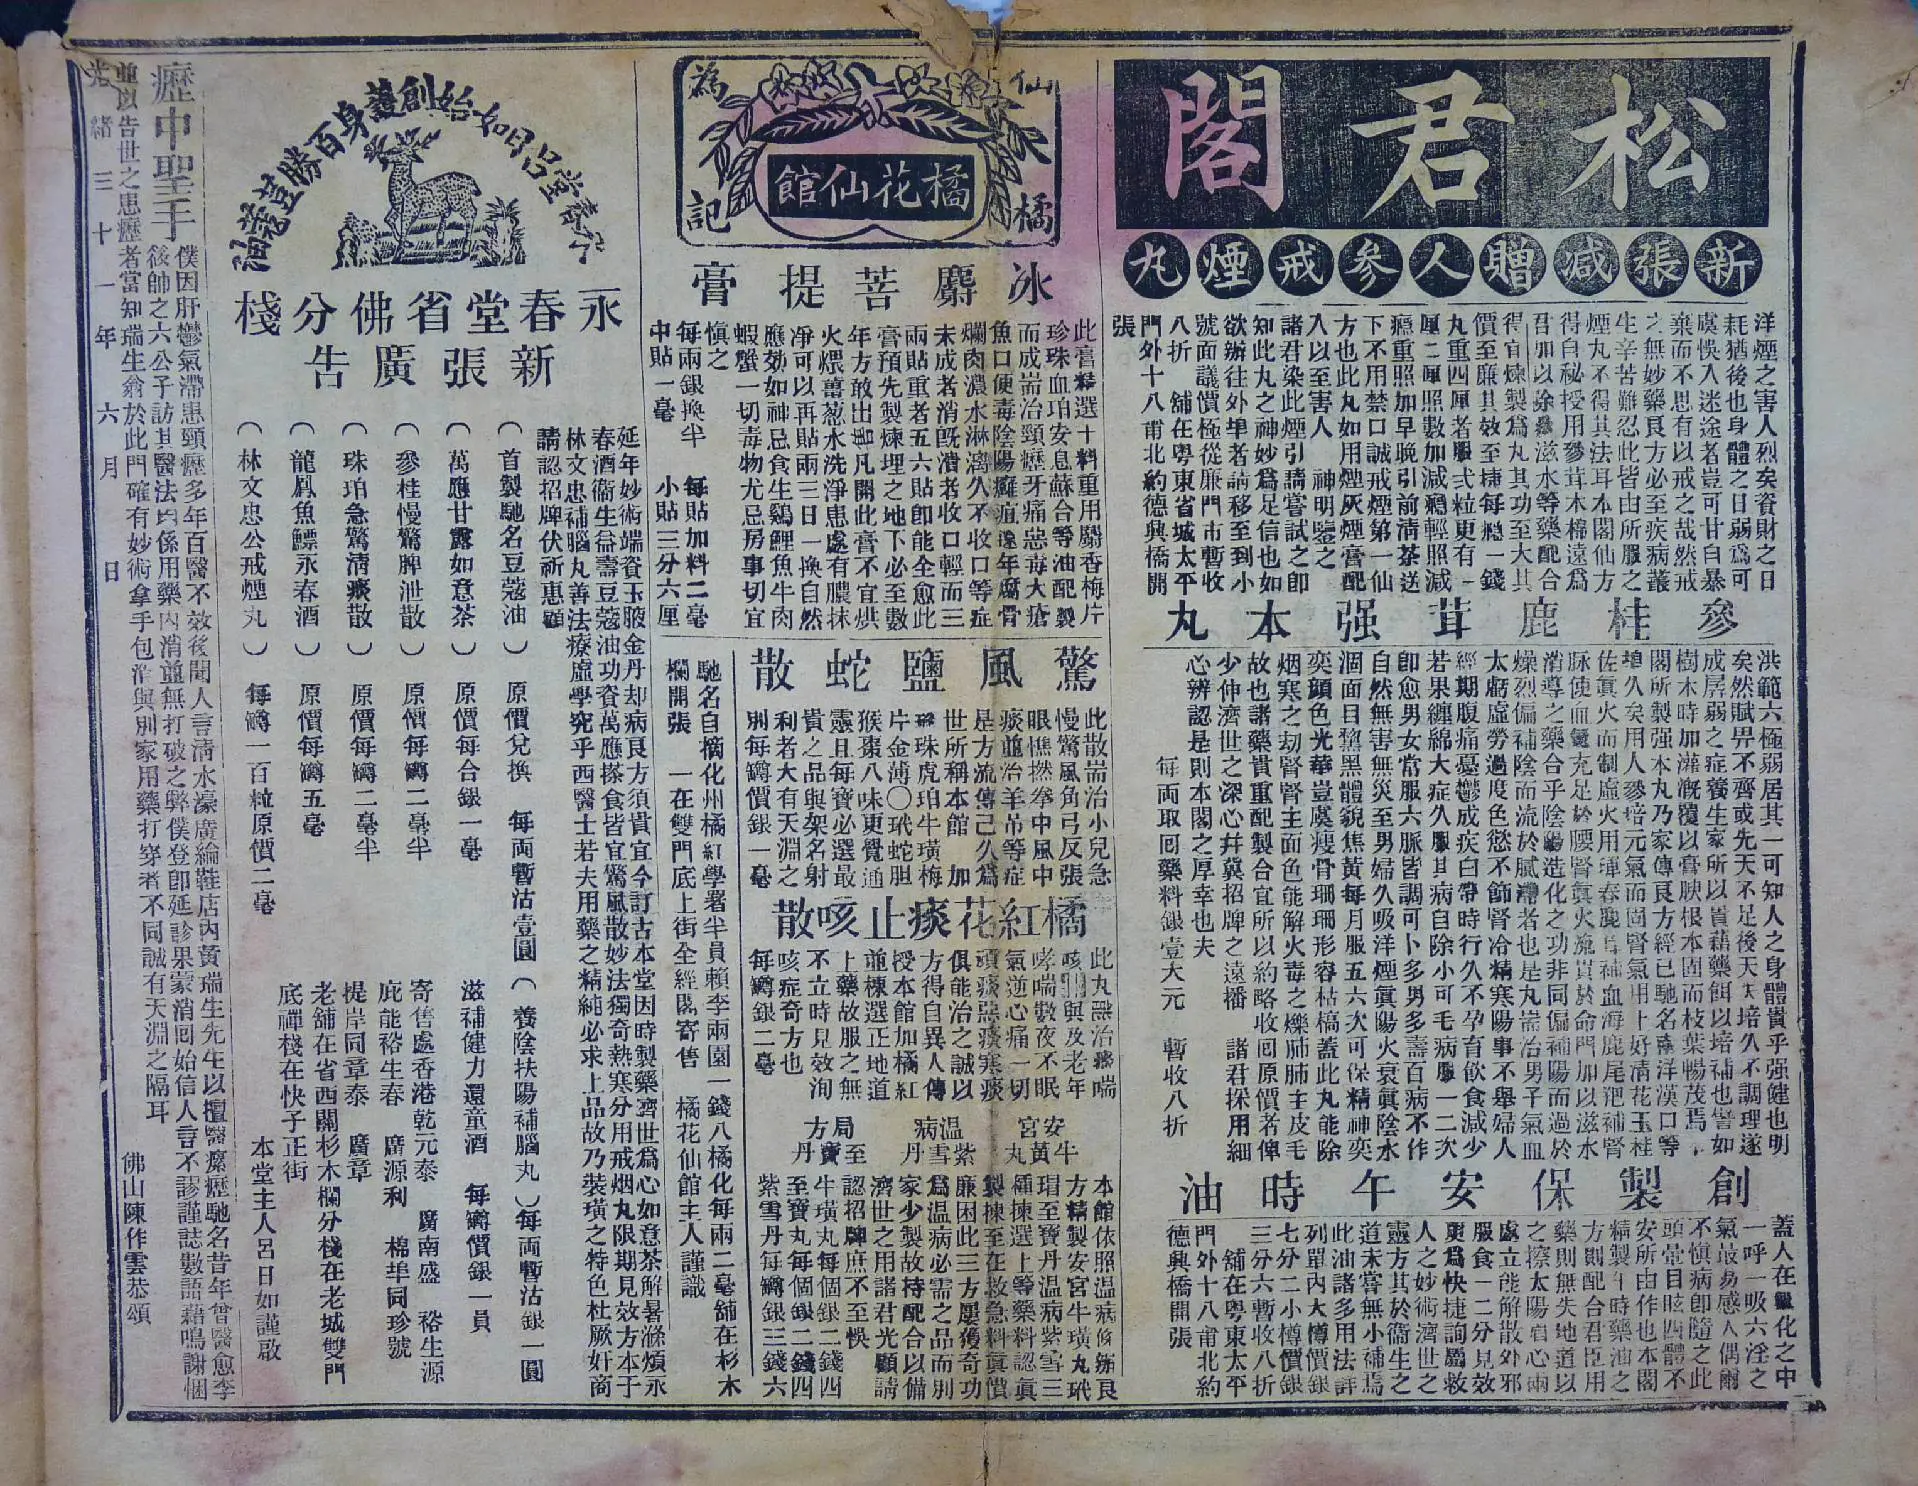 松君閣
新張減贈人參戒煙丸
洋煙之害人烈矣資財之日
耗猶後也身體之日弱爲可
虞悞入迷途者豈可甘自暴
棄而不思有以戒之哉然戒
之無妙藥良方必至疾病叢
生辛苦難忍此皆由所服之
煙丸不得其法耳本閣仙方
得自秘授用參茸木棉遠爲
君加以除滋水等藥配合
得宜煉製爲丸其功至大其
價至廉其效至捷每癮一錢
丸重四厘者服弍粒更有一
厘二厘照數加減癮輕照減
癮重照加早晚引前清茶送
下不用禁口誠戒煙第一仙
方也此丸如用煙灰煙膏配
入以至害人 神明鑒之
諸君染此煙引請嘗試之即
知此丸之神妙爲足信也如
欲辦往外埠者請移至到小
號面議價極從廉門市暫收
八折 舖在粵東省城太平
門外十八甫北約德興橋開
張
參桂鹿茸强本丸
洪範六極弱居其一可知人之身體貴乎强健也明
矣然賦畀不齊或先天不足後天失培久不調理遂
成孱弱之症養生家所以貴藉藥餌以培補也譬如
樹木時加灌漑覆以膏腴根本固而枝葉暢茂焉
閣所製强本丸乃家傳良方經已馳名南洋漢口等
埠久矣用人參培元氣而固腎氣用上好清花玉桂
佐眞火而制虛火用琿春鹿茸補血海鹿尾羓補腎
脉使血氣充足於腰腎眞火流貫於命門加以滋水
消導之藥合乎陰陽造化之功非同偏補陽而過於
燥烈偏補陰而流於膩滯者也是丸耑治男子氣血
太虧虛勞過度色慾不節腎冷精寒陽事不舉婦人
經期腹痛憂鬱成疾白帶時行久不孕育飲食減少
若果纏綿大症久服其病自除小可毛病服一二次
即愈男女常服六脈皆調可卜多男多壽百病不作
自然無害無災至男婦久吸洋煙眞陽火衰眞陰水
涸面目黧黑體貌焦黃每月服五六次可保精神奕
奕顔色光華豈虞瘦骨珊珊形容枯槁蓋此丸能除
烟寒之刧腎腎主面色能解火毒之爍肺肺主皮毛
故也諸藥貴重配製合宜所以約略收回原價若俾
少仲濟世之深心幷冀招牌之遠播 諸君採用細
心辨認是則本閣之厚幸也夫
每両取回藥料銀壹大元 暫收八折
創製保安午時油
蓋人在氣化之中
一呼一吸六淫之
氣最易感人偶爾
不愼病即隨之此
頭暈目眩四體不
安所由作也本閣
精製午時藥油之
方則配合君臣用
藥則無失地道以
之擦太陽眉心兩
處立能解散外邪
服食一二分見效
更爲快捷詢屬救
人之妙術濟世之
靈方其於衞生之
道未嘗無小補焉
此油諸多用法詳
列單內大樽價銀
七分二小樽價銀
三分六暫收八折
舖在粵東太平
門外十八甫北約
德興橋開張
仙橘爲記
橘花仙館
冰麝菩提膏
此膏精選十料重用麝香梅片
珍珠血珀安息蘇合等油配製
而成耑冶頸癧牙痛惡毒大瘡
魚口便毒陰陽癱疽遠年腐骨
爛肉濃水淋漓久不收口等症
未成者消旣潰者收口輕而三
兩貼重者五六貼卽能全愈此
膏預先製煉埋之地下必至數
年方敢出凡開此膏不宜烘
火煨薑葱水洗淨患處有膿抹
凈可以再貼兩三日一換自然
應効如神忌食生鷄鯉魚牛肉
蝦蟹一切毒物尤忌房事切宜
愼之
每兩銀換半 每貼加料二毫
中貼一毫 小貼三分六厘
驚風鹽蛇散
此散耑治小兒急
慢驚風角弓反張
眼憔撚拳中風中
痰並治羊吊等症
是方流傳己久爲
世所稱本館 加
珍珠虎珀牛璜梅
片金薄〇玳蛇胆
猴棗八味更覺通
靈且每寶必選最
貴之品與架名射
利者大有天淵之
別每罇價銀一毫
橘紅花痰止咳散
此丸耑治痰喘
咳與及老年
哮喘數夜不眠
氣逆心痛一切
頑痰惡痰寒痰
俱能治之誠以
方得自異人傳
授本館加橘紅
並棟選正地道
上藥故服之無
不立時見效洵
咳症奇方也
每罇銀二毫
安宮牛黃丸
溫病紫雪丹
局方至寶丹
本館依照溫病條辦良
方精製安宮牛璜丸玳
瑁至寶丹溫病紫雪三
種揀選上等藥料認眞
製揀至在救急料眞價
廉困此三方屢獲奇功
爲溫病必需之品而別
家少製故待配合以備
濟世之用諸君光顧請
認招牌庶不至悞
牛璜丸每個銀二錢四
至寶丸每個銀二錢四
紫雪丹每罇銀三錢六
馳名自摘化州橘紅學署半員賴李兩園一錢八橘化每兩二毫舖在杉木
欄開張 一在雙門底上街全經閣寄售 橘花仙館主人謹識
永春堂呂日如始創護身百勝荳蔻油
永春堂省佛分棧
新張廣告
延年妙術端資玉液金丹却病良方須貴宜今訂古本堂因時製藥濟世爲心如意茶解暑滌煩永
春酒衞生益壽豆蔻油功資萬應搽食皆宜驚風散妙法獨奇熱寒分用戒烟丸限期見效方本于
林文忠補腦丸善法療虛學究乎西醫士若夫用藥之精純必求上品故乃裝璜之特色杜厥奸商
請認招牌伏祈惠顧
（首製馳名豆蔻油） 原價兌換 每両暫沽壹圓（養陰扶陽補腦丸）每両暫沽銀一圓
（萬應甘露如意茶） 原價每合銀一毫 滋補健力還童酒 每罇價銀一員
（參桂慢驚脾泄散） 原價每罇二毫半
（珠珀急驚清痰散） 原價每罇二毫半
（龍鳳魚鰾永春酒） 原價每罇五毫
（林文忠公戒煙丸） 每罇一百粒原價二毫
寄售處香港乾元泰 廣南盛 裕生源
庇能裕生春 廣源利 棉埠同珍號
提岸同章泰 廣章
老舖在省西關杉木欄分棧在老城雙門
底禪棧在快子正街
本堂主人呂日如謹啟
癧中聖手
僕因肝鬱氣滯患頸癧多年百醫不效後聞人言淸水濠廣綸鞋店內黃瑞生先生以擅醫瘰癧馳名昔年曾醫愈李
筱帥之六公子訪其醫法內係用藥內消並無打破之弊僕登卽延診果蒙消囘始信人言不謬謹誌數語藉鳴謝悃
並以告世之患癧者當知瑞生翁於此門確有妙術拿手包消與別家用藥打穿者不同誠有天淵之隔耳
佛山陳作雲恭頌
光緒三十一年六月 日